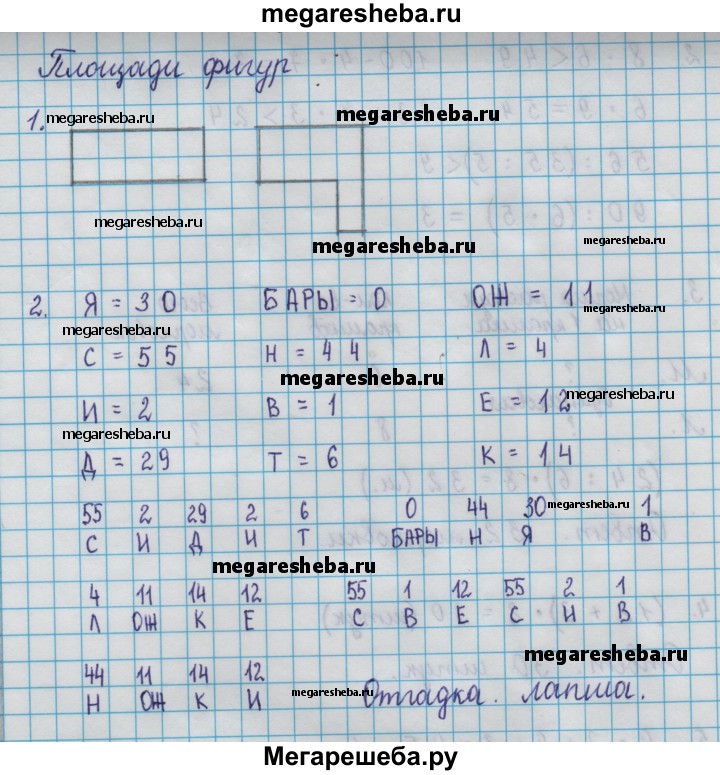 megaresheba.ru
Площади фигур
1.
megaresheba.ru
megaresheba.ru
megaresheba.ru
megaresheba.ru
megaresheba.ru
2. Я = 30 БАРЫ = 0 ОЖ = 11
megaresheba.ru
megaresheba.ru
С = 55 Н = 44 Л = 4
megaresheba.ru
И = 2 В = 1 Е = 12
megaresheba.ru
megaresheba.ru
Д = 29 Т = 6 К = 14
55 2 29 2 6 0 44 30 1
megaresheba.ru
С И Д И Т БАРЫ Н Я В
megaresheba.ru
4 11 14 12 55 1 12 55 2 1
Л ОЖ К Е С В Е С И В
megaresheba.ru
44 11 14 12
megaresheba.ru
Н ОЖ К И Отгадка. лапша.
Мегарешеба.ру